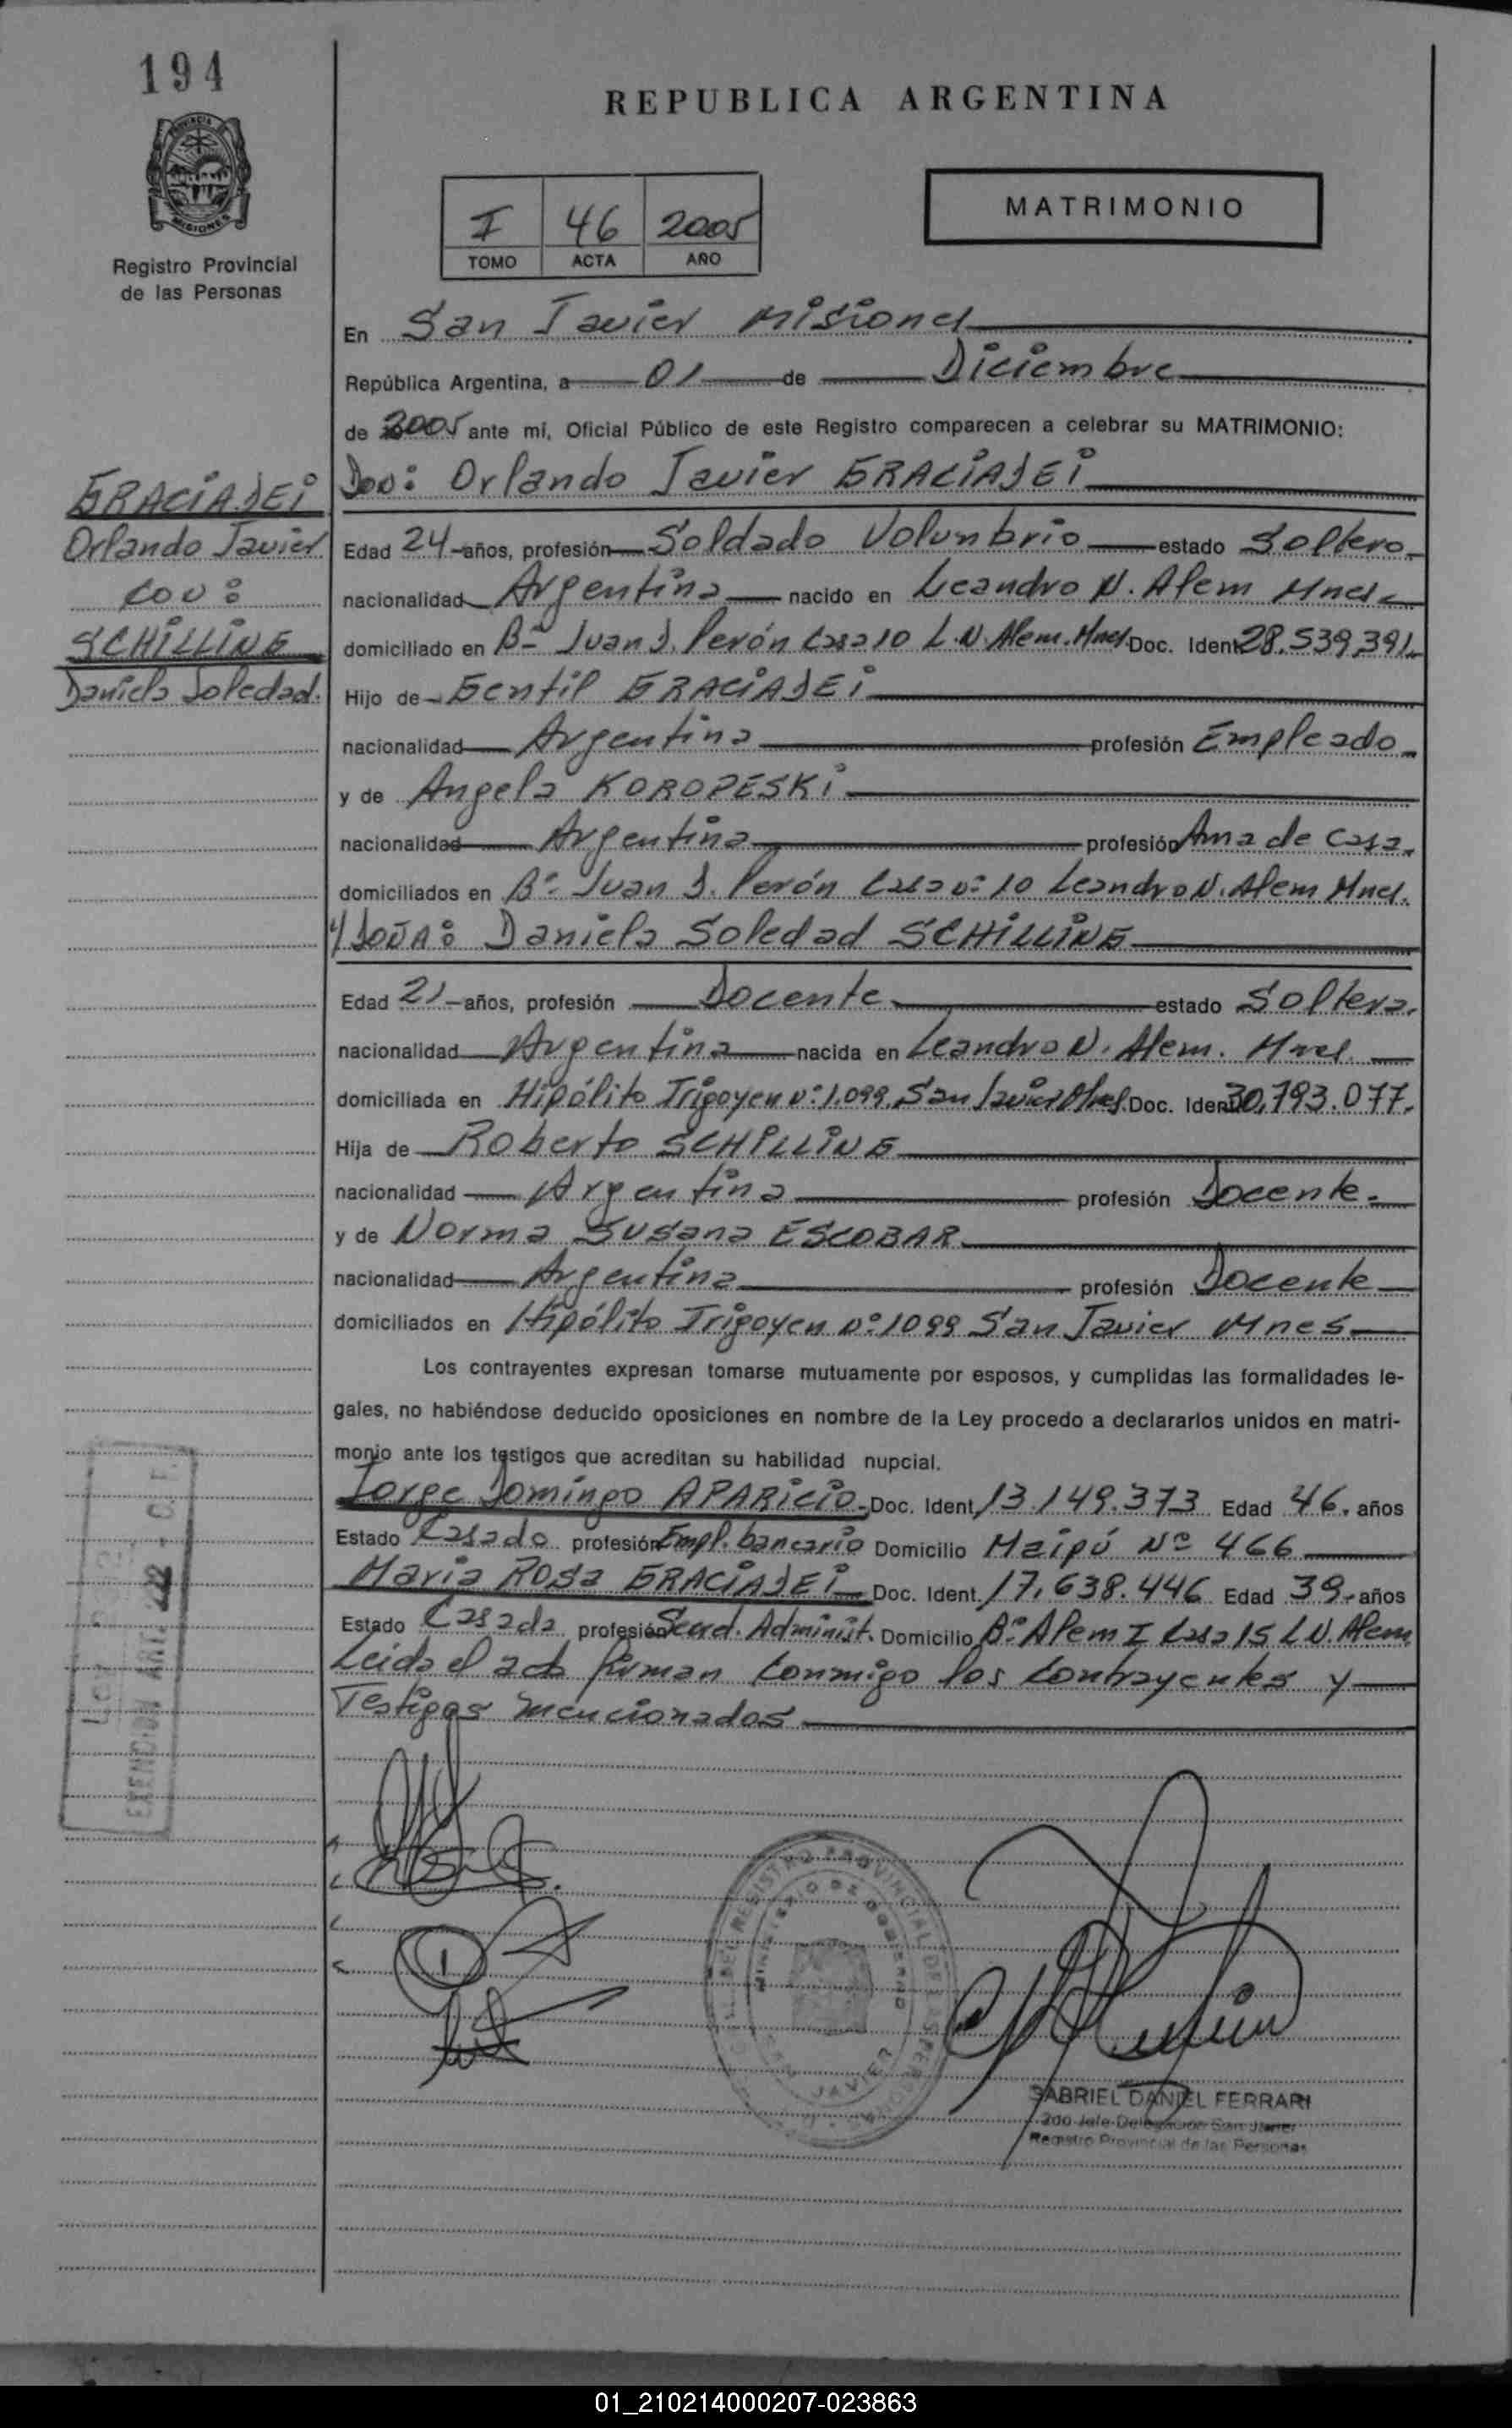 194
REPUBLICA ARGENTINA
MISIONES
Registro Provincial
de las Personas
I 46 2005
TOMO ACTA AÑO
MATRIMONIO
En San Javier Misiones
República Argentina, a 01 de Diciembre
de 2005 ante mí, Oficial Público de este Registro comparecen a celebrar su MATRIMONIO:
GRACIADEI
Orlando Javier
con:
SCHILLING
Daniela Soledad.
Don: Orlando Javier GRACIADEI
Edad 24 años, profesión Soldado Voluntario estado Soltero
nacionalidad Argentina nacido en Leandro N. Alem Mnes
domiciliado en Bº Juan D. Perón Casa 10 L.N. Alem. Mnes Doc. Ident 28.539.391
Hijo de Gentil GRACIADEI
nacionalidad Argentina profesión Empleado
y de Angela KOROPESKI
nacionalidad Argentina profesión Ama de Casa.
domiciliados en Bº Juan D. Perón Casa nº 10 Leandro N. Alem Mnes.
y DOÑA: Daniela Soledad SCHILLING
Edad 21 años, profesión Docente estado Soltera.
nacionalidad Argentina nacida en Leandro N. Alem. Mnes
domiciliada en Hipólito Irigoyen nº 1.099 San Javier Mnes. Doc. Ident 30.793.077.
Hija de Roberto SCHILLING
nacionalidad Argentina profesión Docente.
y de Norma Susana ESCOBAR
nacionalidad Argentina profesión Docente
domiciliados en Hipólito Irigoyen nº 1099 San Javier Mnes
Los contrayentes expresan tomarse mutuamente por esposos, y cumplidas las formalidades le-
gales, no habiéndose deducido oposiciones en nombre de la Ley procedo a declararlos unidos en matri-
monio ante los testigos que acreditan su habilidad nupcial.
Jorge Domingo APARICIO Doc. Ident 13.149.373 Edad 46. años
Estado Casado profesión Empl. bancario Domicilio Maipú Nº 466
Maria Rosa GRACIADEI Doc. Ident. 17.638.446 Edad 39 años
Estado Casada profesión Administ. Domicilio Bº Alem I Casa 15 L.N. Alem
Leida el acta firman conmigo los contrayentes y
Testigos mencionados
REGISTRO PROVINCIAL DE LAS PERSONAS
MINISTERIO DE GOBIERNO
SAN JAVIER
GABRIEL DANIEL FERRARI
2do Jefe Delegación San Javier
Registro Provincial de las Personas
01_210214000207-023863